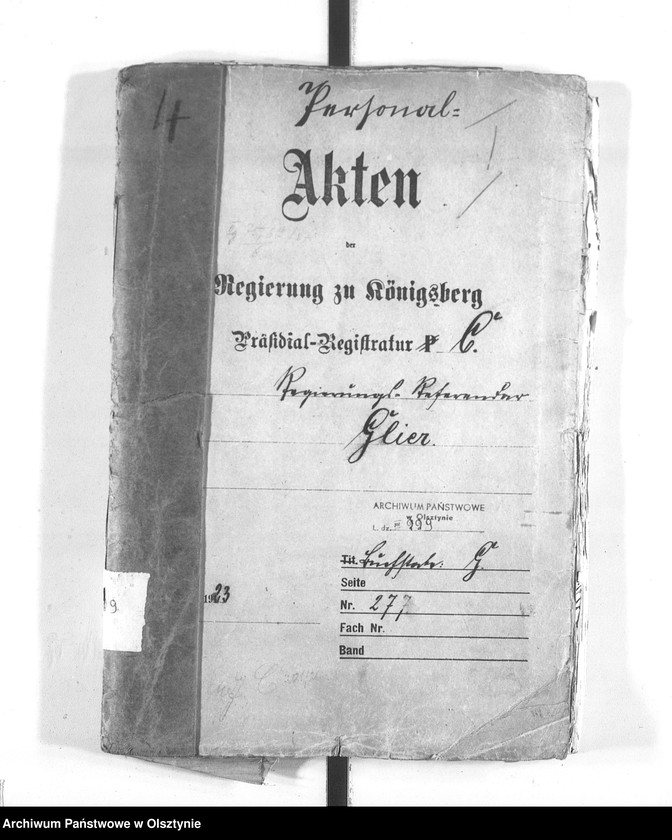 4
Personal-
Akten
der
Regierung zu Königsberg
Präsidial-Registratur P C.
Regierungs-Referendar
Glier.
ARCHIWUM PAŃSTWOWE
w Olsztynie
L. dz. III 999
Tit. Buchstabe: G.
Seite
9.
1923
Nr. 277
Fach Nr.
Band
Archiwum Państwowe w Olsztynie